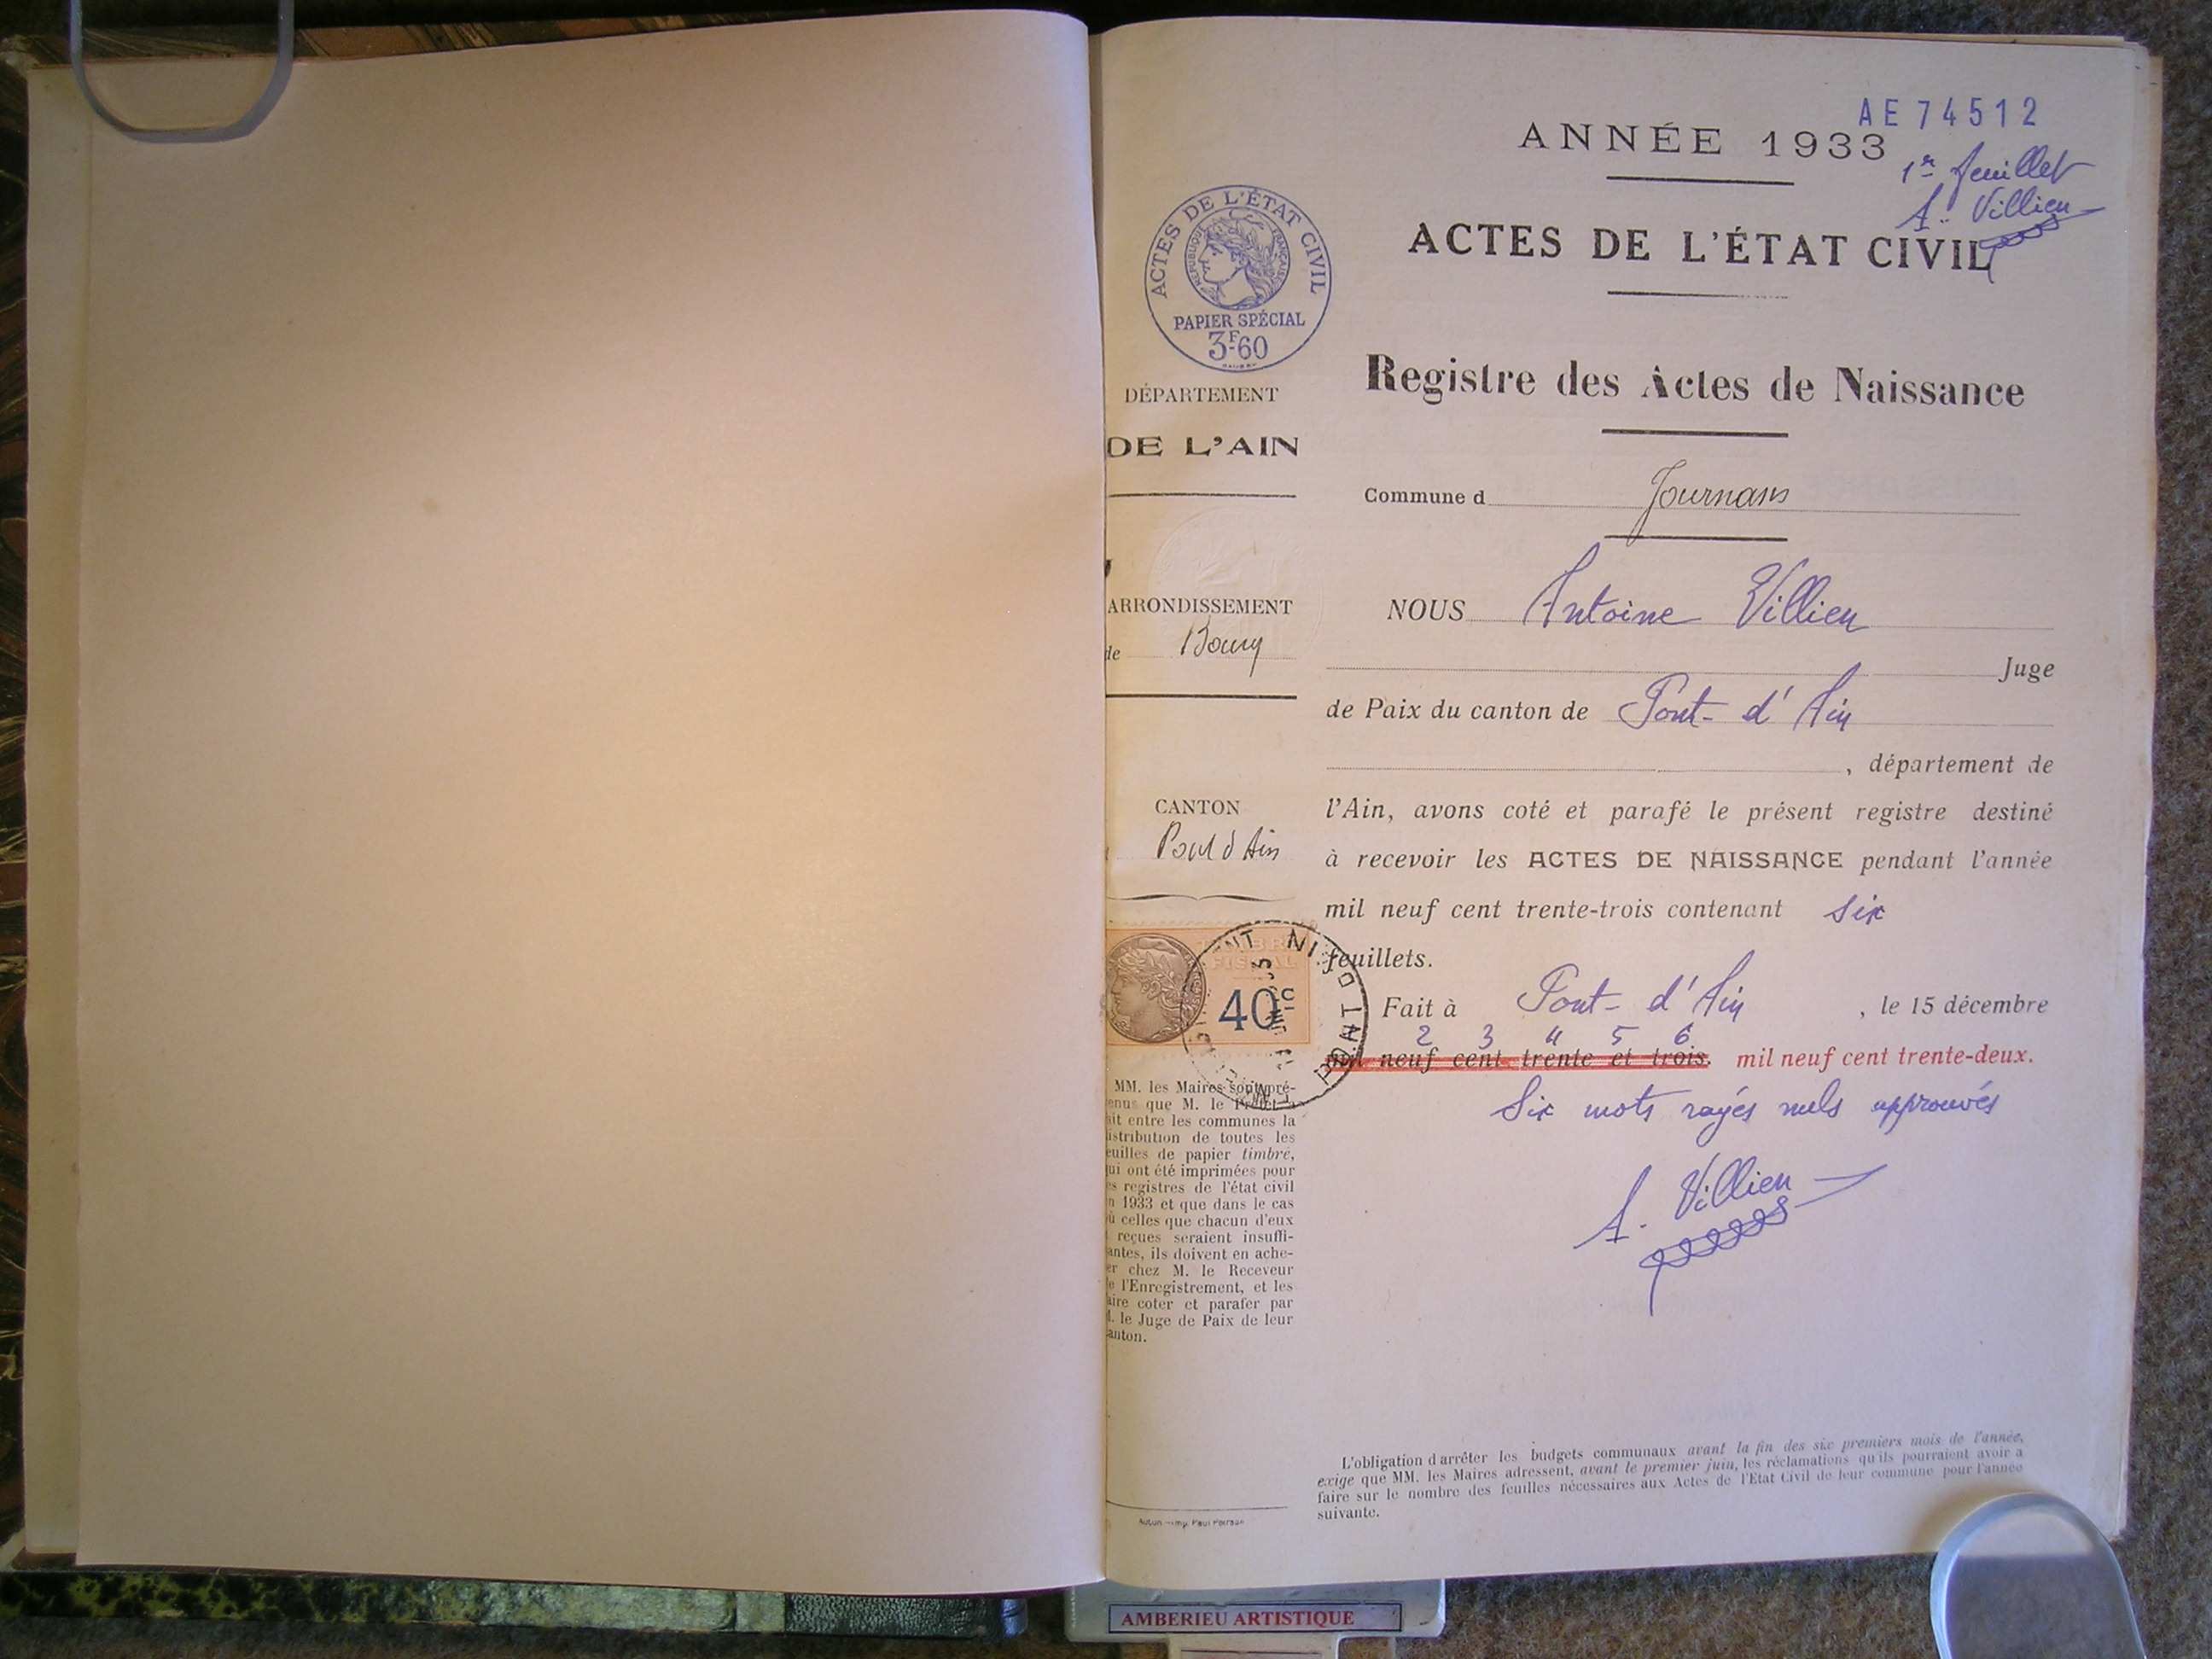 AE 74512
ANNÉE 1933
1er feuillet
A. Villien
ACTES DE L'ÉTAT CIVIL
ACTES DE L'ÉTAT CIVIL
RÉPUBLIQUE FRANÇAISE
PAPIER SPÉCIAL
3F60
Registre des Actes de Naissance
DÉPARTEMENT
DE L'AIN
Commune d Journans
ARRONDISSEMENT
de Bourg
NOUS Antoine Villien
Juge
de Paix du canton de Pont-d'Ain
, département de
CANTON
Pont d'Ain
l'Ain, avons coté et parafé le présent registre destiné
à recevoir les ACTES DE NAISSANCE pendant l'année
mil neuf cent trente-trois contenant six
feuillets.
TIMBRE
FISCAL
40c
Fait à Pont-d'Ain, le 15 décembre
2 3 4 5 6
mil neuf cent trente et trois. mil neuf cent trente-deux.
Six mots rayés nuls approuvés
A. Villien
MM. les Maires sont pré-
enus que M. le Préfet a
ait entre les communes la
istribution de toutes les
euilles de papier timbré,
ui ont été imprimées pour
es registres de l'état civil
n 1933 et que dans le cas
ù celles que chacun d'eux
reçues seraient insuffi-
antes, ils doivent en ache-
er chez M. le Receveur
e l'Enregistrement, et les
aire coter et parafer par
M. le Juge de Paix de leur
anton.
L'obligation d'arrêter les budgets communaux avant la fin des six premiers mois de l'année,
exige que MM. les Maires adressent, avant le premier juin, les réclamations qu'ils pourraient avoir à
faire sur le nombre des feuilles nécessaires aux Actes de l'Etat Civil de leur commune pour l'année
suivante.
AMBERIEU ARTISTIQUE